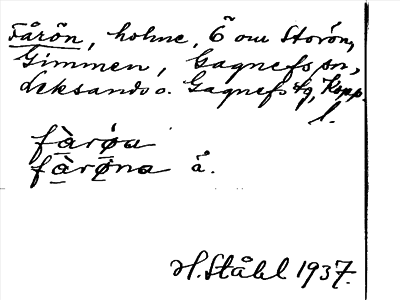 Fårön, holme, Ö om Storön,
Gimmen, Gagnefs sn,
Leksands o. Gagnefs tg, Kopp.
l.
fàrǿn
fàrǿna å.
H. Ståhl 1937.